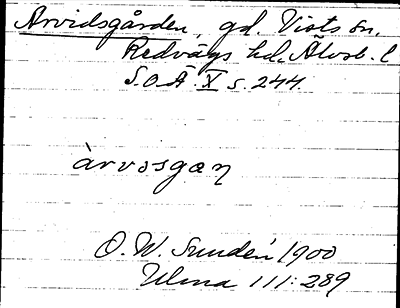 Arvidsgården, gd. Vists sn.
Redvägs hd. Älvsb. l
S.O.Ä. X s. 244.
àrvosgaɳ
O. W. Sundén 1900
Ulma 111:289